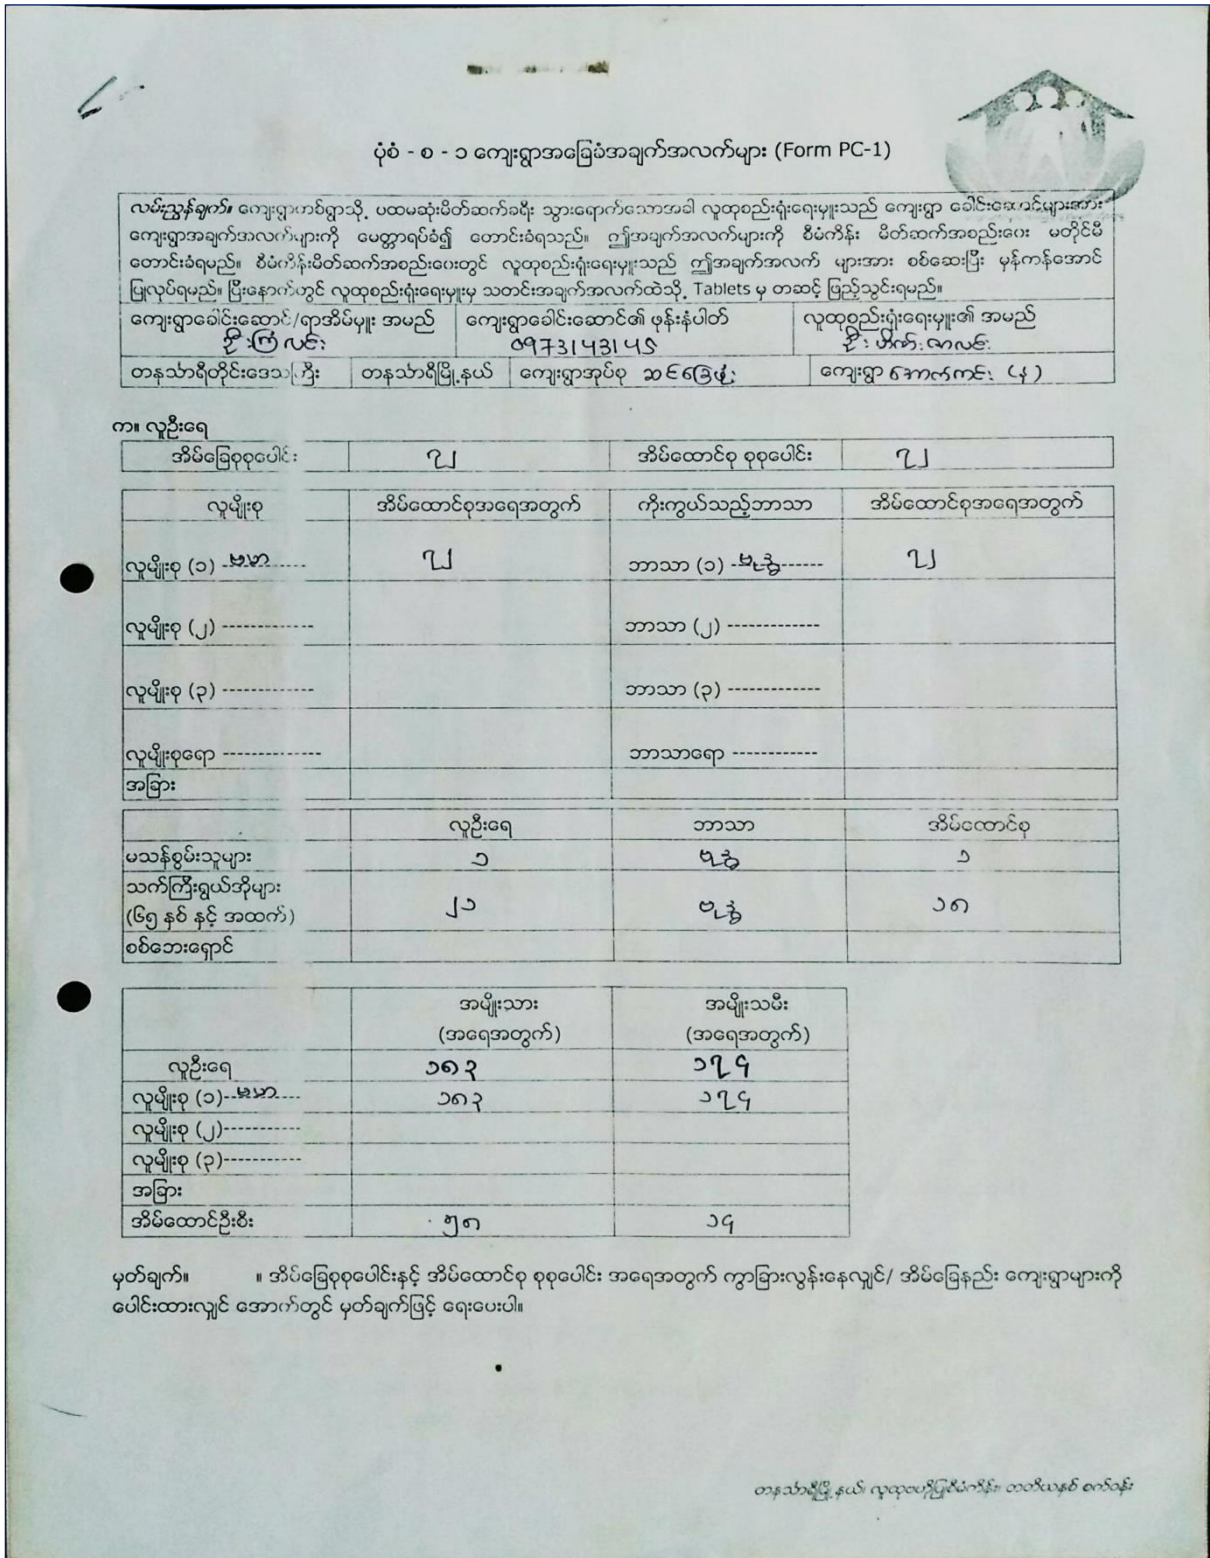 ပုံစံ - စ - ၁ ကျေးရွာအခြေခံအချက်အလက်များ (Form PC-1)
လမ်းညွှန်ချက်။ ကျေးရွာတစ်ရွာသို့ ပထမဆုံးမိတ်ဆက်ခရီး သွားရောက်သောအခါ လူထုစည်းရုံးရေးမှူးသည် ကျေးရွာ ခေါင်းဆောင်များအား
ကျေးရွာအချက်အလက်များကို မေတ္တာရပ်ခံ၍ တောင်းခံရသည်။ ဤအချက်အလက်များကို စီမံကိန်း မိတ်ဆက်အစည်းဝေး မတိုင်မီ
တောင်းခံရမည်။ စီမံကိန်းမိတ်ဆက်အစည်းဝေးတွင် လူထုစည်းရုံးရေးမှူးသည် ဤအချက်အလက် များအား စစ်ဆေးပြီး မှန်ကန်အောင်
ပြုလုပ်ရမည်။ ပြီးနောက်တွင် လူထုစည်းရုံးရေးမှူးမှ သတင်းအချက်အလက်ထဲသို့ Tablets မှ တဆင့် ဖြည့်သွင်းရမည်။
ကျေးရွာခေါင်းဆောင်/ရာအိမ်မှူး အမည် ကျေးရွာခေါင်းဆောင်၏ ဖုန်းနံပါတ် လူထုစည်းရုံးရေးမှူး၏ အမည်
ဦးကြံလင်း 0973143145 ဦး
တနင်္သာရီတိုင်းဒေသကြီး တနင်္သာရီမြို့နယ် ကျေးရွာအုပ်စု ကျေးရွာ
က။ လူဦးရေ
အိမ်ခြေစုစုပေါင်း ၇၂ အိမ်ထောင်စု စုစုပေါင်း ၇၂
လူမျိုးစု အိမ်ထောင်စုအရေအတွက် ကိုးကွယ်သည့်ဘာသာ အိမ်ထောင်စုအရေအတွက်
လူမျိုးစု (၁) -ဗမာ----- ၇၂ ဘာသာ (၁) -ဗုဒ္ဓ------ ၇၂
လူမျိုးစု (၂) ------------- ဘာသာ (၂) -------------
လူမျိုးစု (၃) ------------- ဘာသာ (၃) -------------
လူမျိုးစုရော -------------- ဘာသာရော ------------
အခြား
လူဦးရေ ဘာသာ အိမ်ထောင်စု
မသန်စွမ်းသူများ ၁ ဗုဒ္ဓ ၁
သက်ကြီးရွယ်အိုများ
(၆၅ နှစ် နှင့် အထက်) ၂၁ ဗုဒ္ဓ ၁၈
စစ်ဘေးရှောင်
အမျိုးသား အမျိုးသမီး
(အရေအတွက်) (အရေအတွက်)
လူဦးရေ ၁၈၃ ၁၇၄
လူမျိုးစု (၁)--ဗမာ---- ၁၈၃ ၁၇၄
လူမျိုးစု (၂)-----------
လူမျိုးစု (၃)-----------
အခြား
အိမ်ထောင်ဦးစီး ၅၈ ၁၄
မှတ်ချက်။ ။ အိမ်ခြေစုစုပေါင်းနှင့် အိမ်ထောင်စု စုစုပေါင်း အရေအတွက် ကွာခြားလွန်းနေလျှင်/ အိမ်ခြေနည်း ကျေးရွာများကို
ပေါင်းထားလျှင် အောက်တွင် မှတ်ချက်ဖြင့် ရေးပေးပါ။
တနင်္သာရီမြို့နယ်၊ လူထုဗဟိုပြုစီမံကိန်း၊ တတိယနှစ် စက်ဝန်း